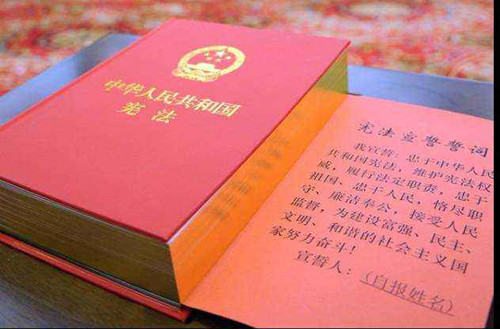 中华人民共和国
宪法
宪法宣誓誓词
我宣誓：忠于中华人民
共和国宪法，维护宪法权
威，履行法定职责，忠于
祖国、忠于人民，恪尽职
守、廉洁奉公，接受人民
监督，为建设富强、民主、
文明、和谐的社会主义国
家努力奋斗！
宣誓人：（自报姓名）